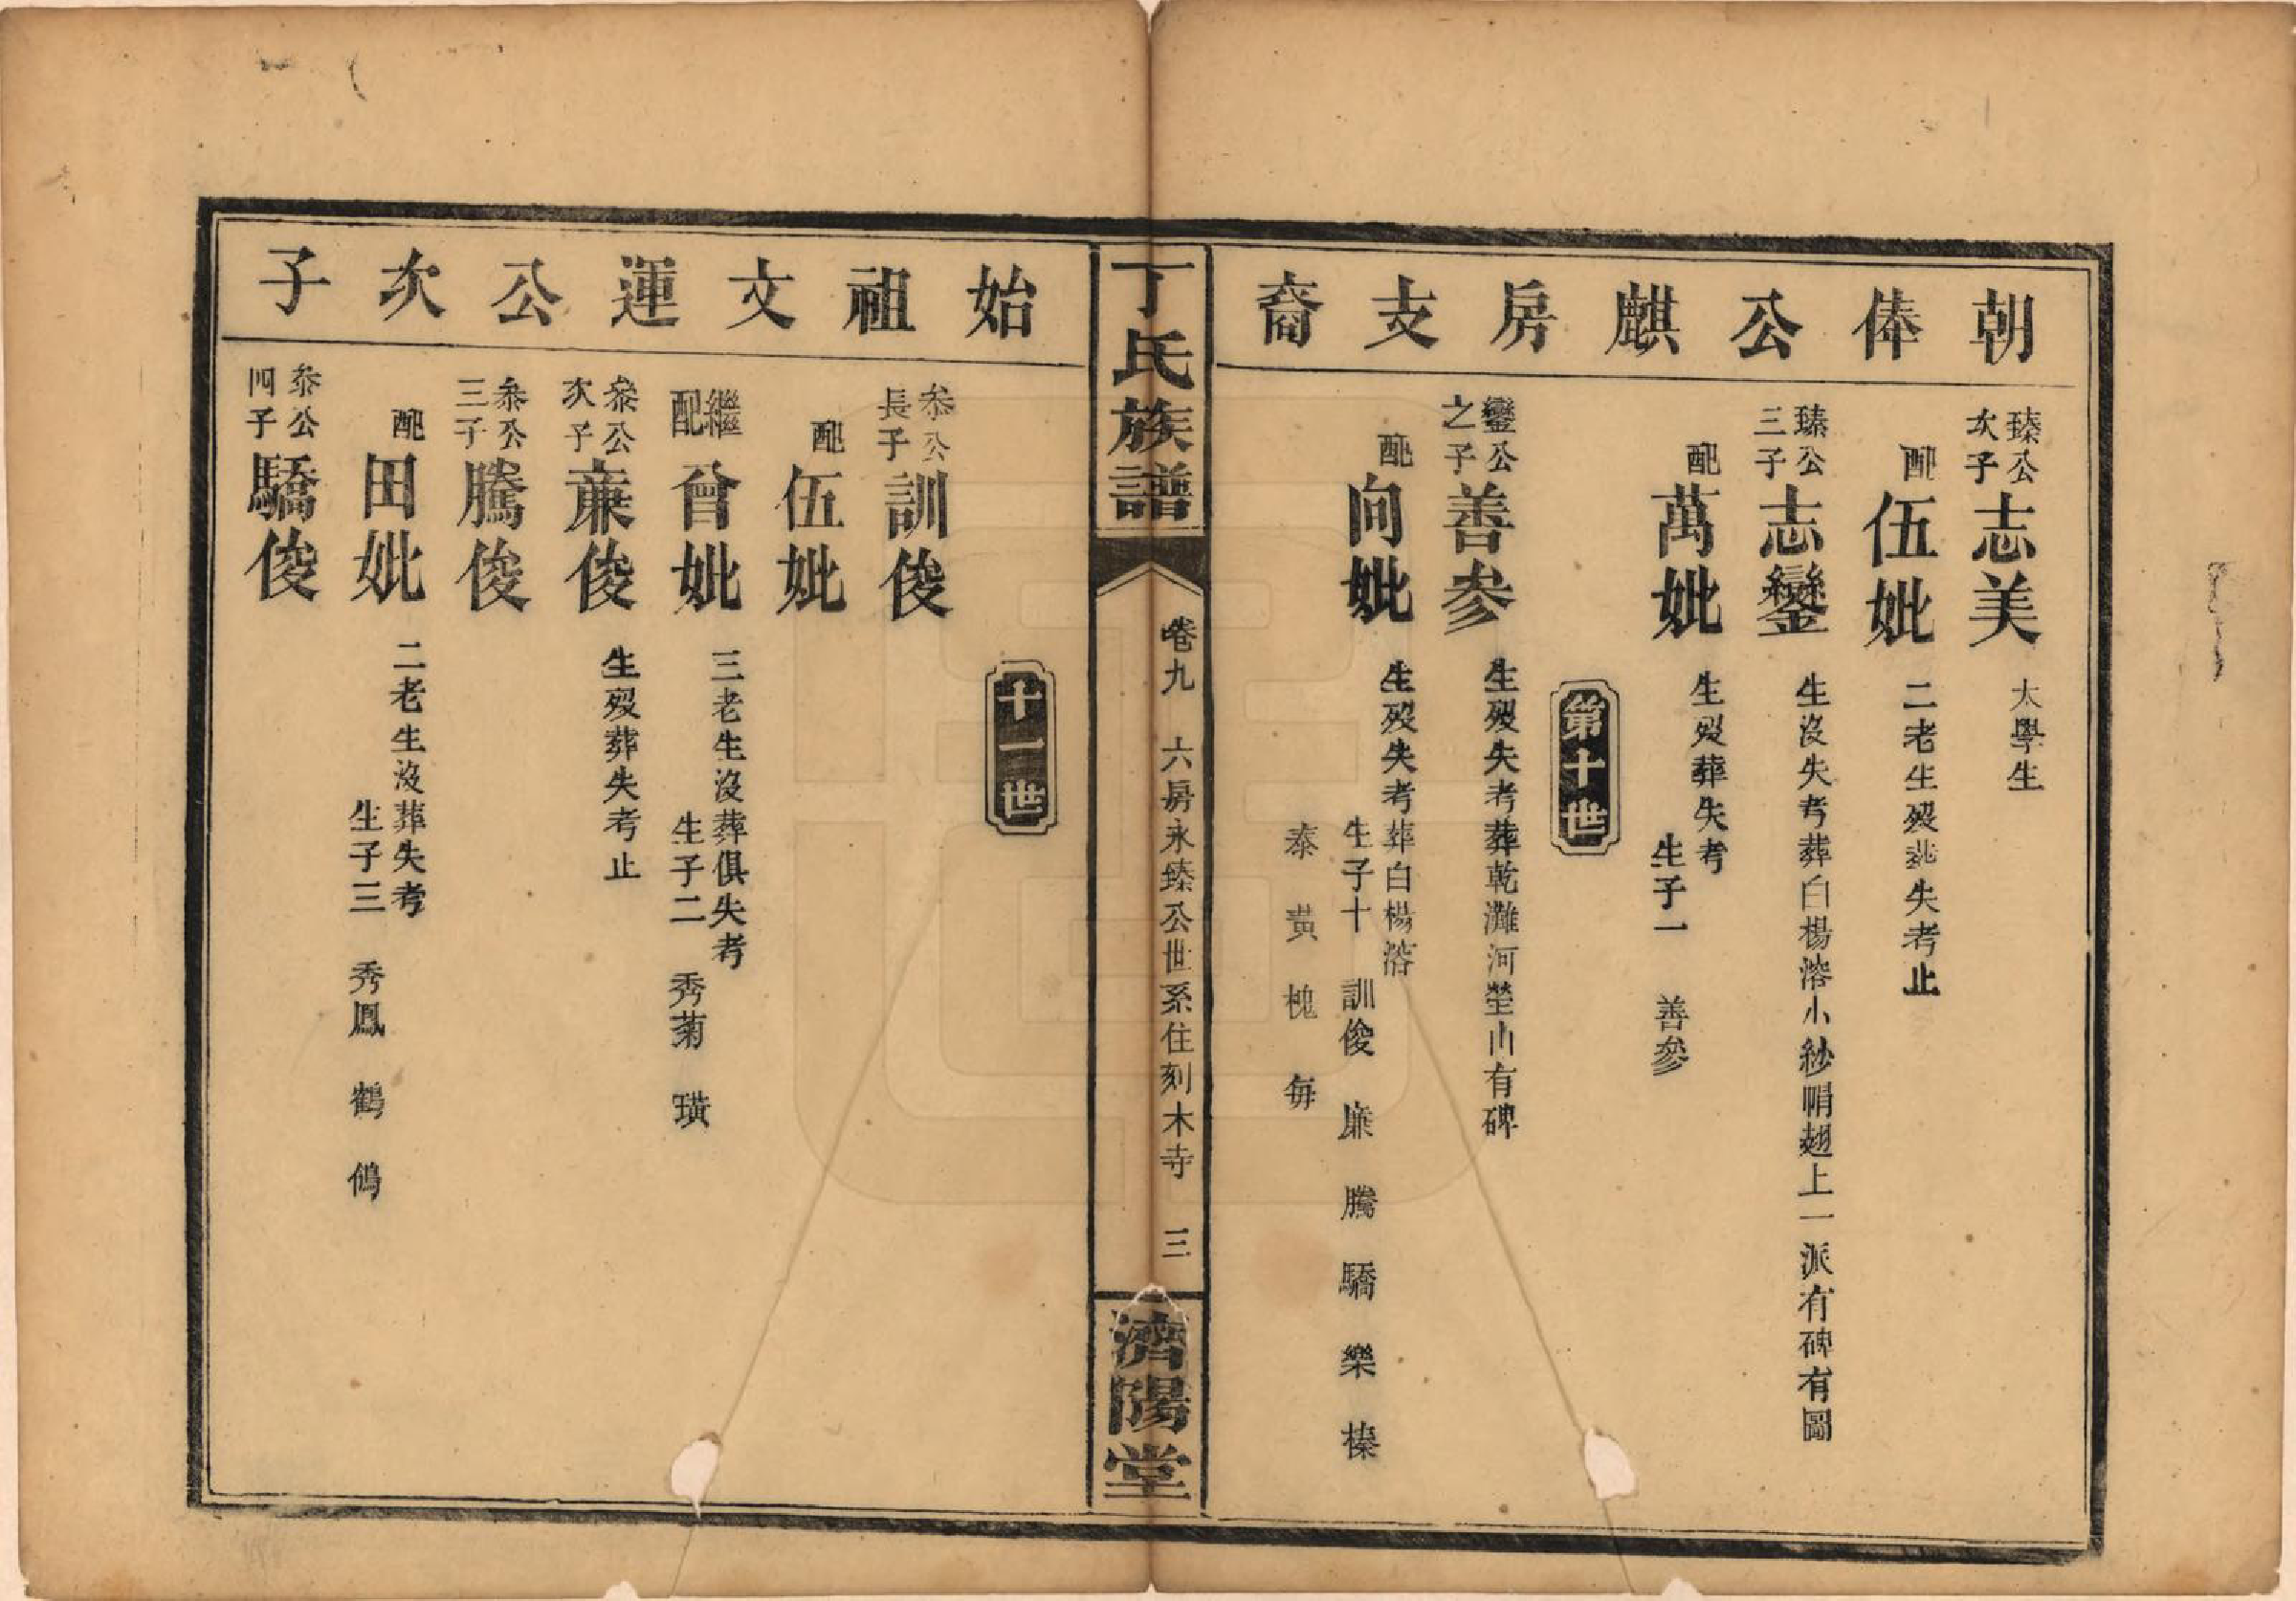 朝俸公麒房支裔
臻公次子志美 太學生
配伍妣 二老生殁葬失考止
臻公三子志鑾 生没失考葬白楊溶小紗帽翅上一派有碑有圖
配萬妣 生殁葬失考
生子一 善參
第十世
鑾公之子善参 生殁失考葬乾灘河塋山有碑
配向妣 生殁失考葬白楊溶
生子十 訓俊 廉 騰 驕 樂 榛
泰 黄 槐 毎
丁氏族譜
卷九 六房永臻公世系住刻木寺 三
濟陽堂
始祖文運公次子
十一世
叅公長子訓俊
配伍妣
繼配曾妣 三老生没葬俱失考
生子二 秀菊 璜
叅公次子廉俊 生殁葬失考止
叅公三子騰俊
配田妣 二老生没葬失考
生子三 秀鳳 鶴 鸺
叅公四子驕俊